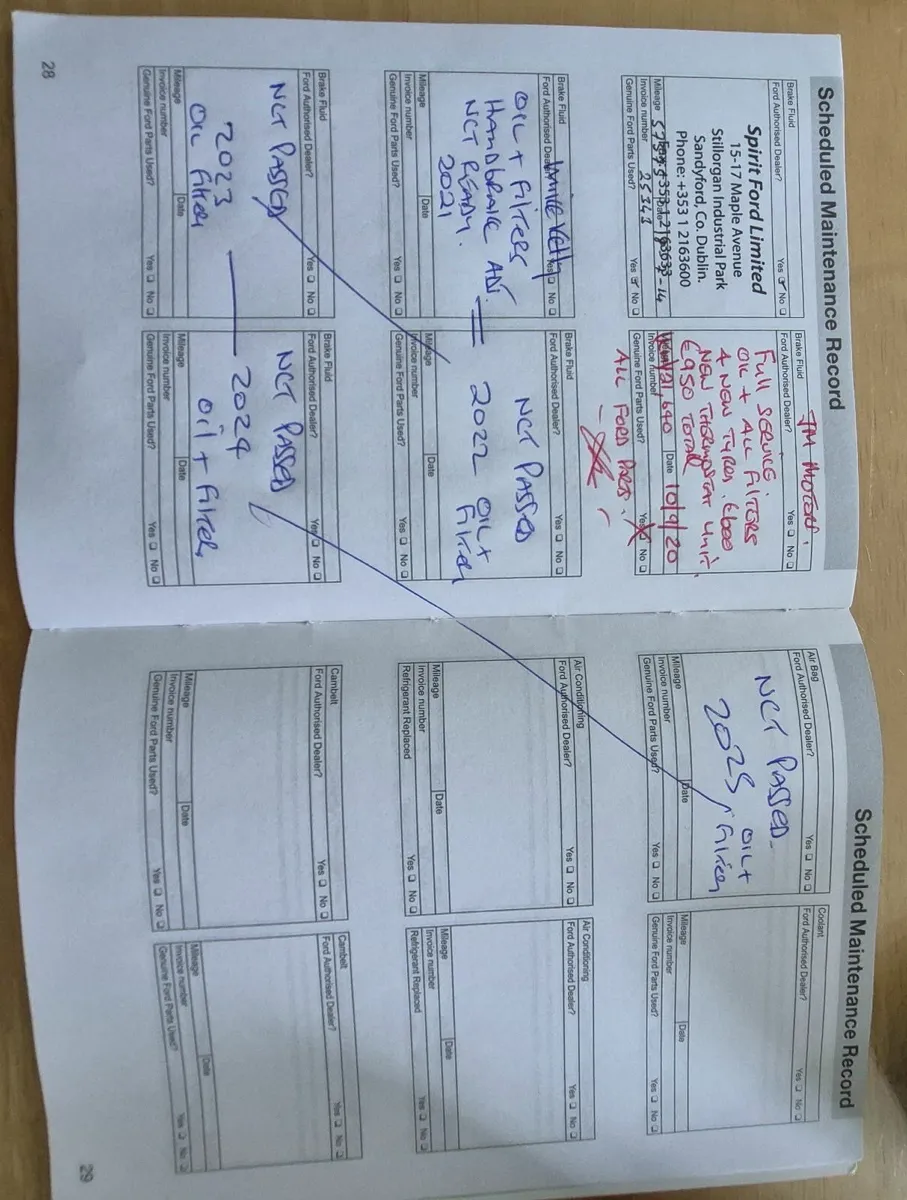 Scheduled Maintenance Record
Brake Fluid
Ford Authorised Dealer? Yes No
Spirit Ford Limited
15-17 Maple Avenue
Stillorgan Industrial Park
Sandyford, Co. Dublin.
Phone: +353 1 2163600
Mileage Date
Invoice number 25343
Genuine Ford Parts Used? Yes No
TM MOTORS.
Brake Fluid
Ford Authorised Dealer? Yes No
Full SERVICE.
OIL + ALL FILTORS
4 NEW TYRES. €600
NEW THERMOSTAT UNIT.
€950 TOTAL
Date 10/9/20
Invoice number
Genuine Ford Parts Used? Yes No
ALL FORD PARTS.
Brake Fluid
Ford Authorised Dealer? Yes No
OIL + FILTERS
HANDBRAKE ADJ.
NCT READY.
2021
Mileage Date
Invoice number
Genuine Ford Parts Used? Yes No
Brake Fluid
Ford Authorised Dealer? Yes No
NCT PASSED
2022 OIL +
FILTER
Mileage Date
Invoice number
Genuine Ford Parts Used? Yes No
Brake Fluid
Ford Authorised Dealer? Yes No
NCT PASSED
2023
OIL FILTER
Mileage Date
Invoice number
Genuine Ford Parts Used? Yes No
Brake Fluid
Ford Authorised Dealer? Yes No
NCT PASSED
2024
OIL + FILTER
Mileage Date
Invoice number
Genuine Ford Parts Used? Yes No
28
Scheduled Maintenance Record
Air Bag
Ford Authorised Dealer? Yes No
NCT PASSED.
2025 OIL +
FILTER
Mileage Date
Invoice number
Genuine Ford Parts Used? Yes No
Coolant
Ford Authorised Dealer? Yes No
Mileage Date
Invoice number
Genuine Ford Parts Used? Yes No
Air Conditioning
Ford Authorised Dealer? Yes No
Mileage Date
Invoice number
Refrigerant Replaced Yes No
Air Conditioning
Ford Authorised Dealer? Yes No
Mileage Date
Invoice number
Refrigerant Replaced Yes No
Cambelt
Ford Authorised Dealer? Yes No
Mileage Date
Invoice number
Genuine Ford Parts Used? Yes No
Cambelt
Ford Authorised Dealer? Yes No
Mileage Date
Invoice number
Genuine Ford Parts Used? Yes No
29